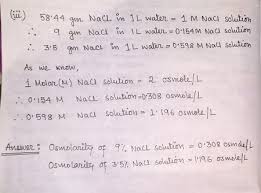 (iii) 58.44 gm NaCl in 1L water = 1 M NaCl solution
∴ 9 gm NaCl in 1L water = 0.154M NaCl solution
∴ 3.5 gm NaCl in 1L water = 0.598 M NaCl solution
As we know,
1 Molar(M) NaCl solution = 2 osmole/L
∴ 0.154 M NaCl solution = 0.308 osmole/L
∴ 0.598 M NaCl solution = 1.196 osmole/L
Answer: Osmolarity of 9% NaCl solution = 0.308 Osmole/L
Osmolarity of 3.5% NaCl solution = 1.196 Osmole/L